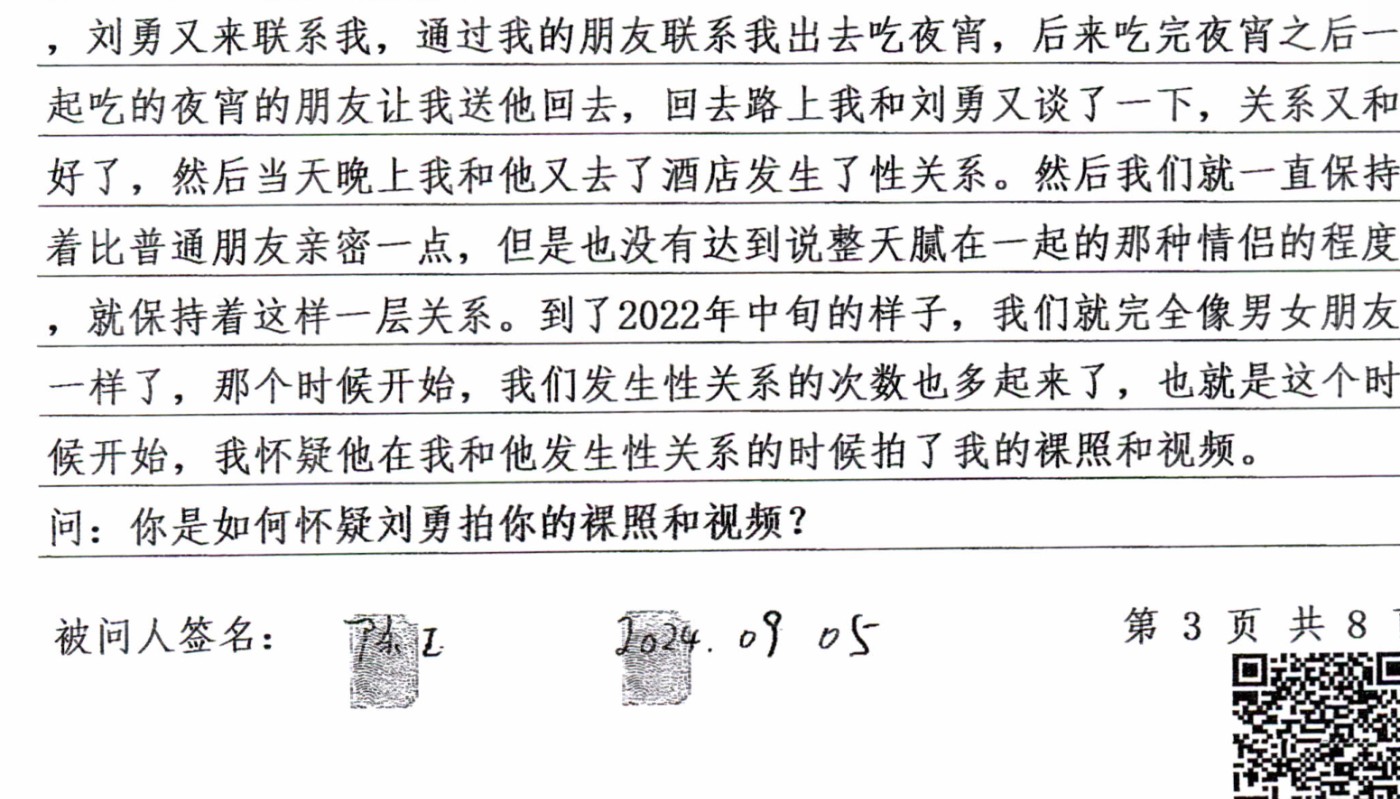 ，刘勇又来联系我，通过我的朋友联系我出去吃夜宵，后来吃完夜宵之后一
起吃的夜宵的朋友让我送他回去，回去路上我和刘勇又谈了一下，关系又和
好了，然后当天晚上我和他又去了酒店发生了性关系。然后我们就一直保持
着比普通朋友亲密一点，但是也没有达到说整天腻在一起的那种情侣的程度
，就保持着这样一层关系。到了2022年中旬的样子，我们就完全像男女朋友
一样了，那个时候开始，我们发生性关系的次数也多起来了，也就是这个时
候开始，我怀疑他在我和他发生性关系的时候拍了我的裸照和视频。
问：你是如何怀疑刘勇拍你的裸照和视频？
被问人签名： 2024.09 05 第 3 页 共 8